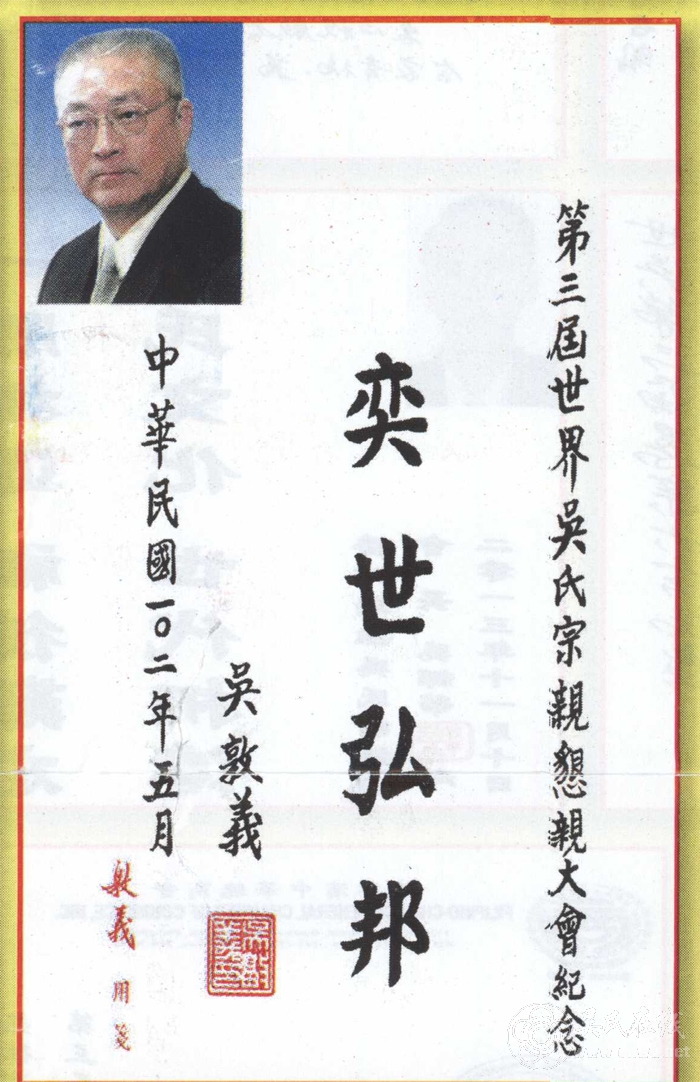 第三屆世界吳氏宗親懇親大會紀念
奕世弘邦
吳敦義
中華民國一〇二年五月
敦義用箋